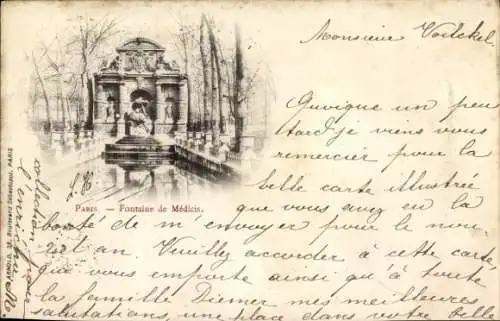 Monsieur Voelckel.
Quoique un peu
tard je viens vous
remercier pour la
belle carte illustrée
que vous avez eu la
bonté de m'envoyer pour le nou-
vel an. Veuillez accorder à cette carte
que vous emporte ainsi qu'à toute
la famille Diemer mes meilleures
salutations, une place dans votre belle
collection
PARIS. — Fontaine de Médicis.
ARNOLD, Boulevard Sébastopol, PARIS